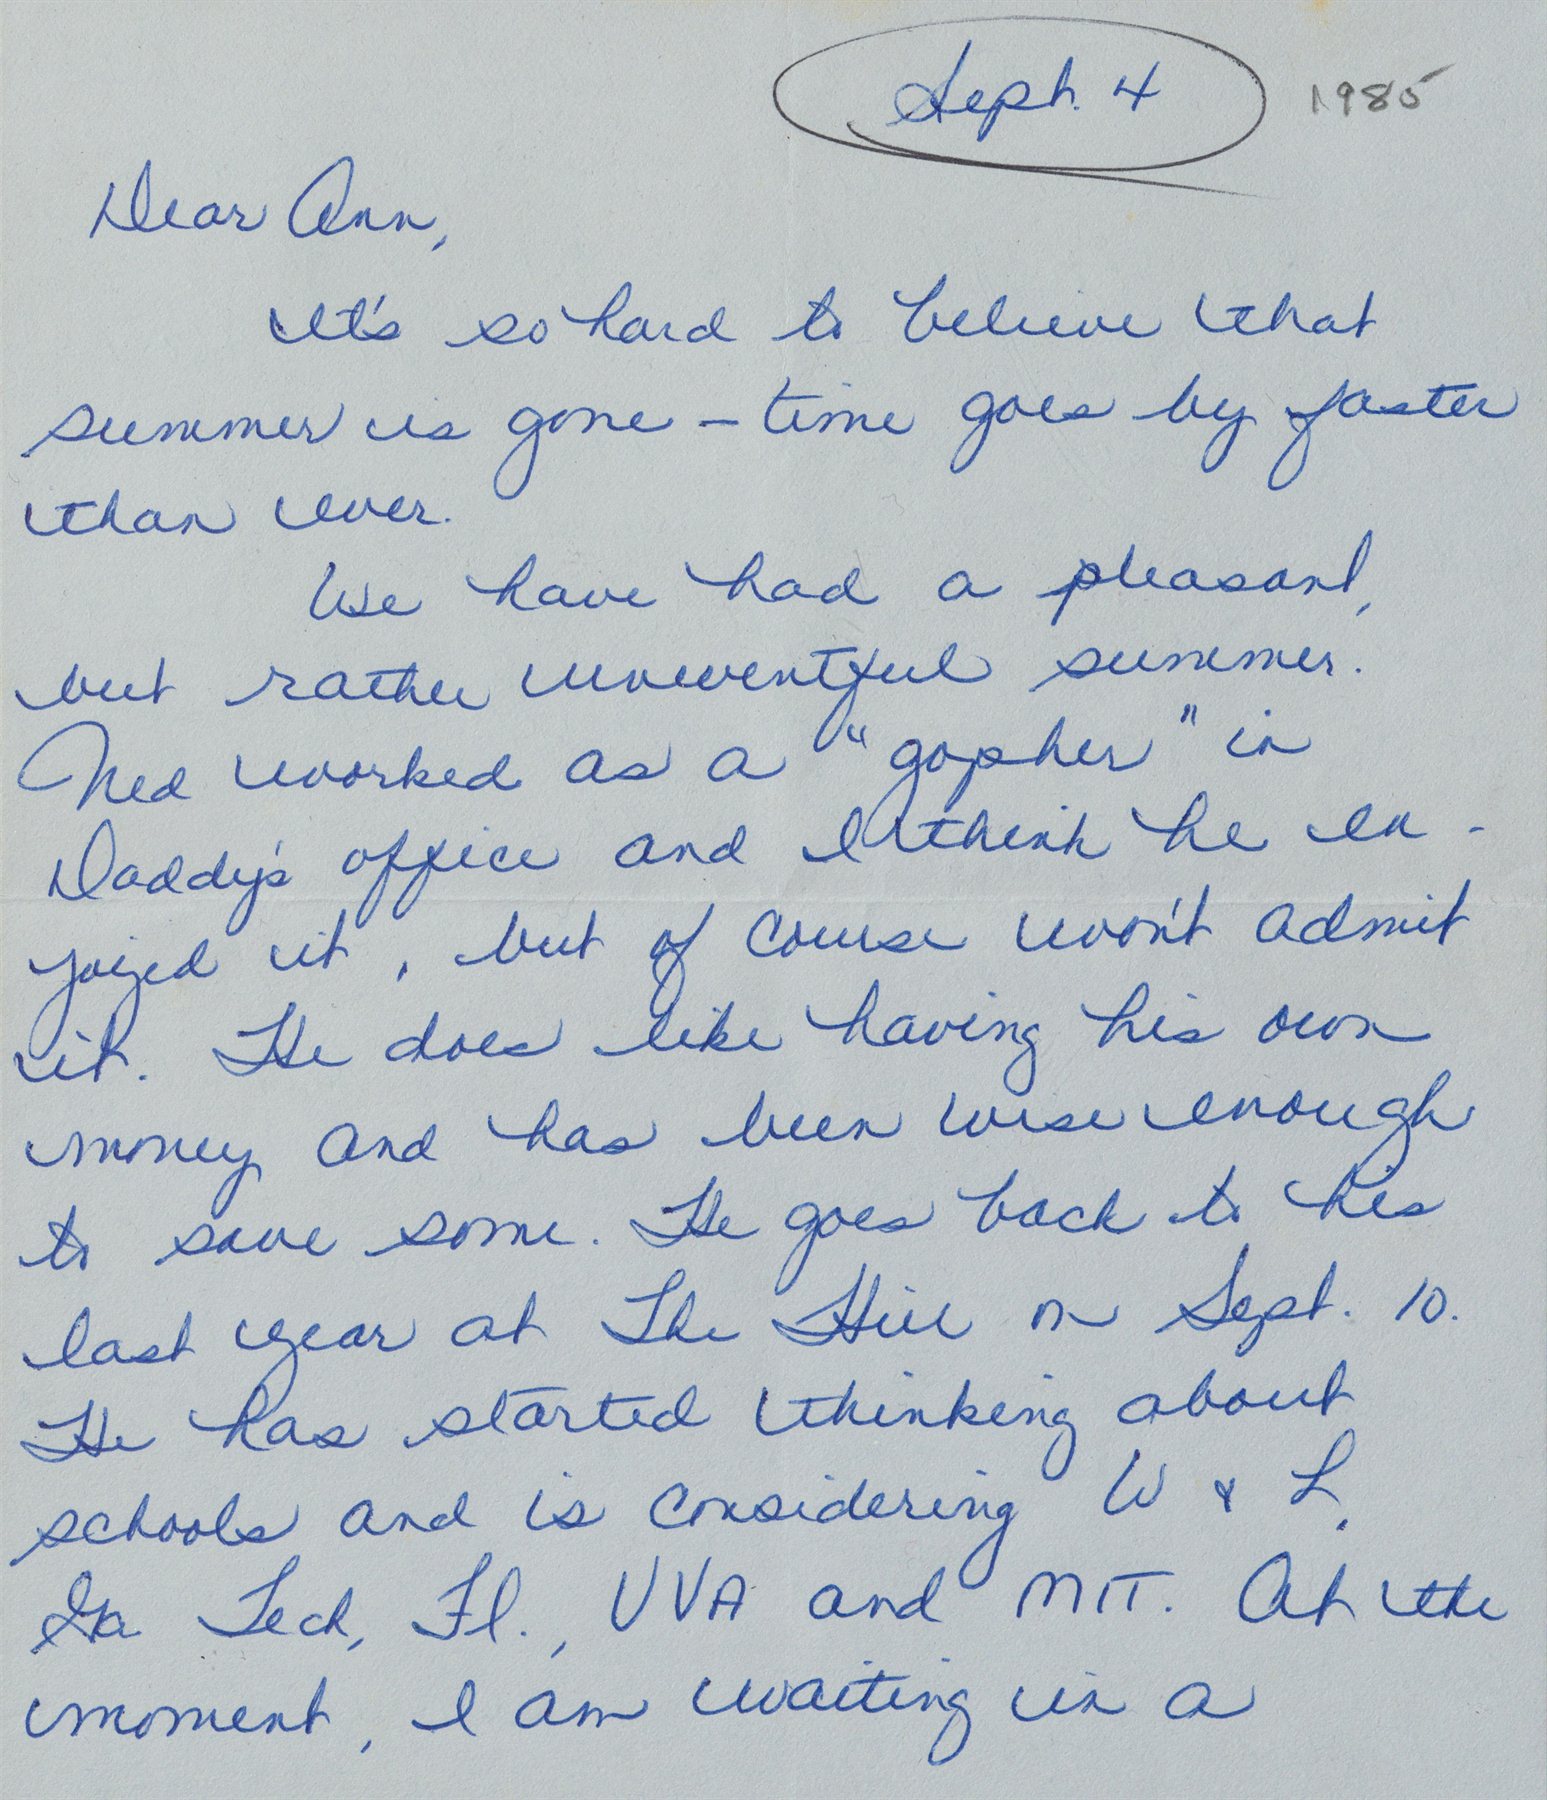 Sept. 4 1985
Dear Ann,
It's so hard to believe that
summer is gone – time goes by faster
than ever.
We have had a pleasant,
but rather uneventful summer.
Ned worked as a "gopher" in
Daddy's office and I think he en-
joyed it, but of course won't admit
it. He does like having his own
money and has been wise enough
to save some. He goes back to his
last year at The Hill on Sept. 10.
He has started thinking about
schools and is considering W & L,
Ga Tech, Fl., UVA and MIT. At the
moment, I am waiting in a